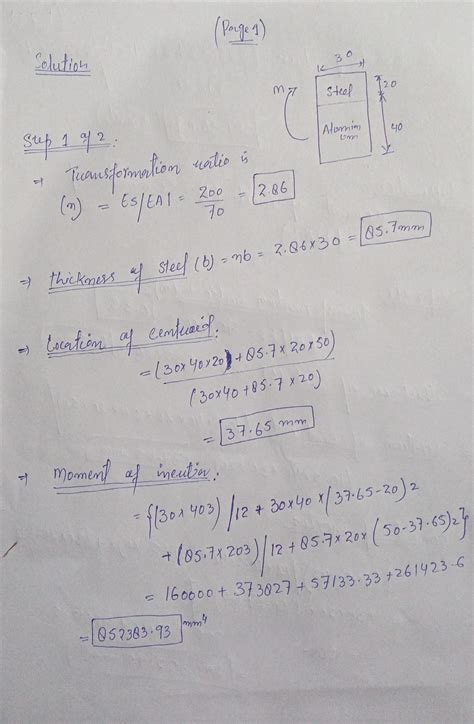 (Page 1)
Solution
30
m
Steel
20
Alumin
ium
40
Step 1 of 2:
⇒ Transformation ratio is
(n) = Es/EAl = 200/70 = 2.86
⇒ thickness of steel (b) = nb = 2.86 × 30 = 85.7mm
⇒ Location of centroid:
= (30×40×20) + 85.7×20×50)
(30×40 + 85.7×20)
= 37.65 mm
⇒ Moment of inertia:
= {(30×403)/12 + 30×40×(37.65-20)2
+ (85.7×203)/12 + 85.7×20×(50-37.65)2}
= 160000 + 373827 + 57133.33 + 261423.6
= 852383.93 mm⁴